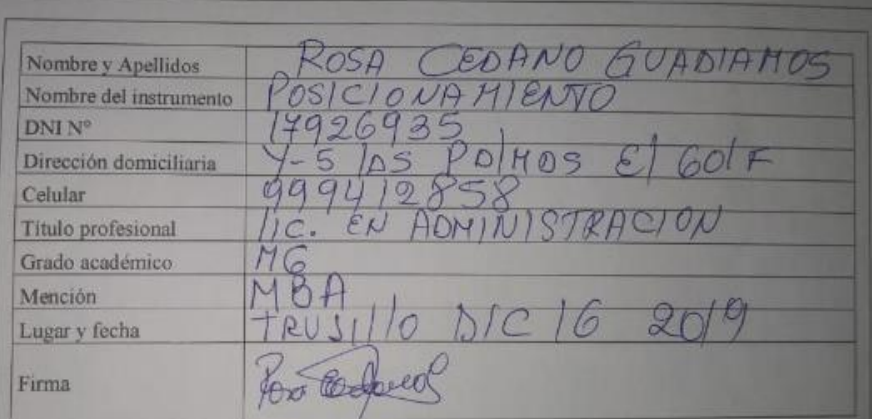 Nombre y Apellidos ROSA CEDANO GUADIAMOS
Nombre del instrumento POSICIONAMIENTO
DNI N° 17926935
Dirección domiciliaria Y-5 lAS PAlMAS El GOlF
Celular 999412858
Título profesional lIC. EN ADMINISTRACION
Grado académico MG
Mención MBA
Lugar y fecha TRUJIllO DIC 16 2019
Firma Rosa